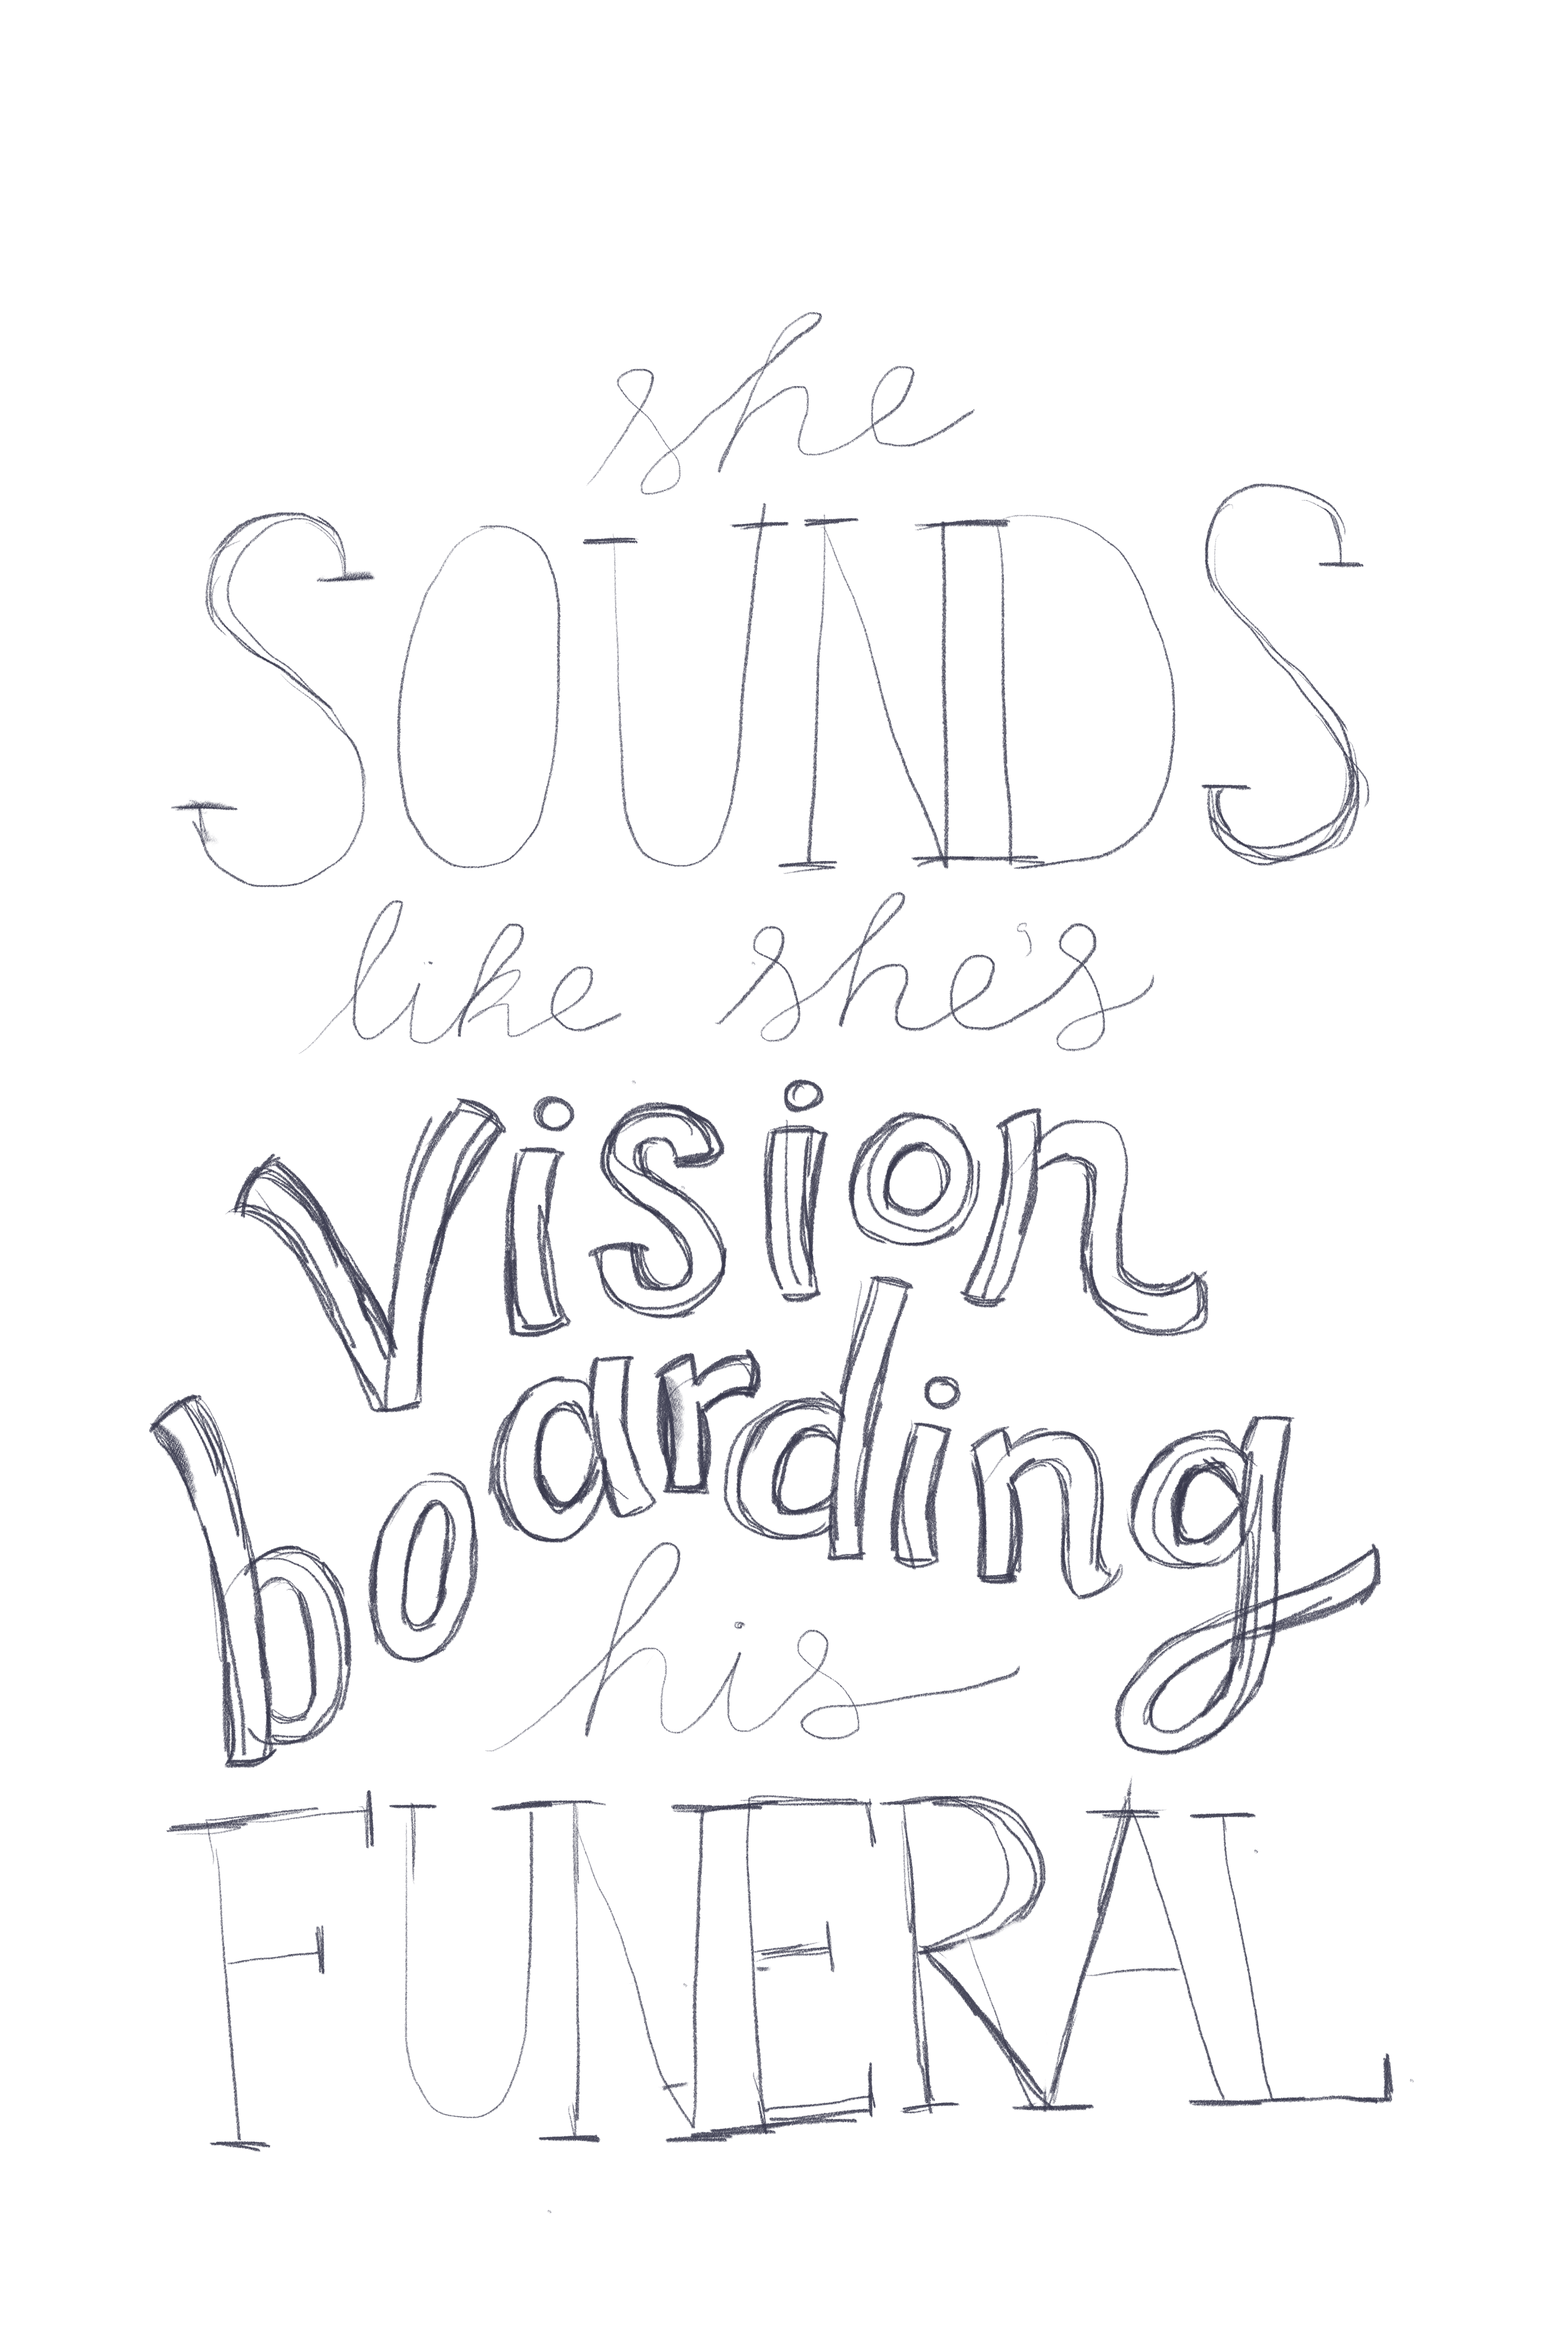 she
SOUNDS
like she's
vision
boarding
his
FUNERAL